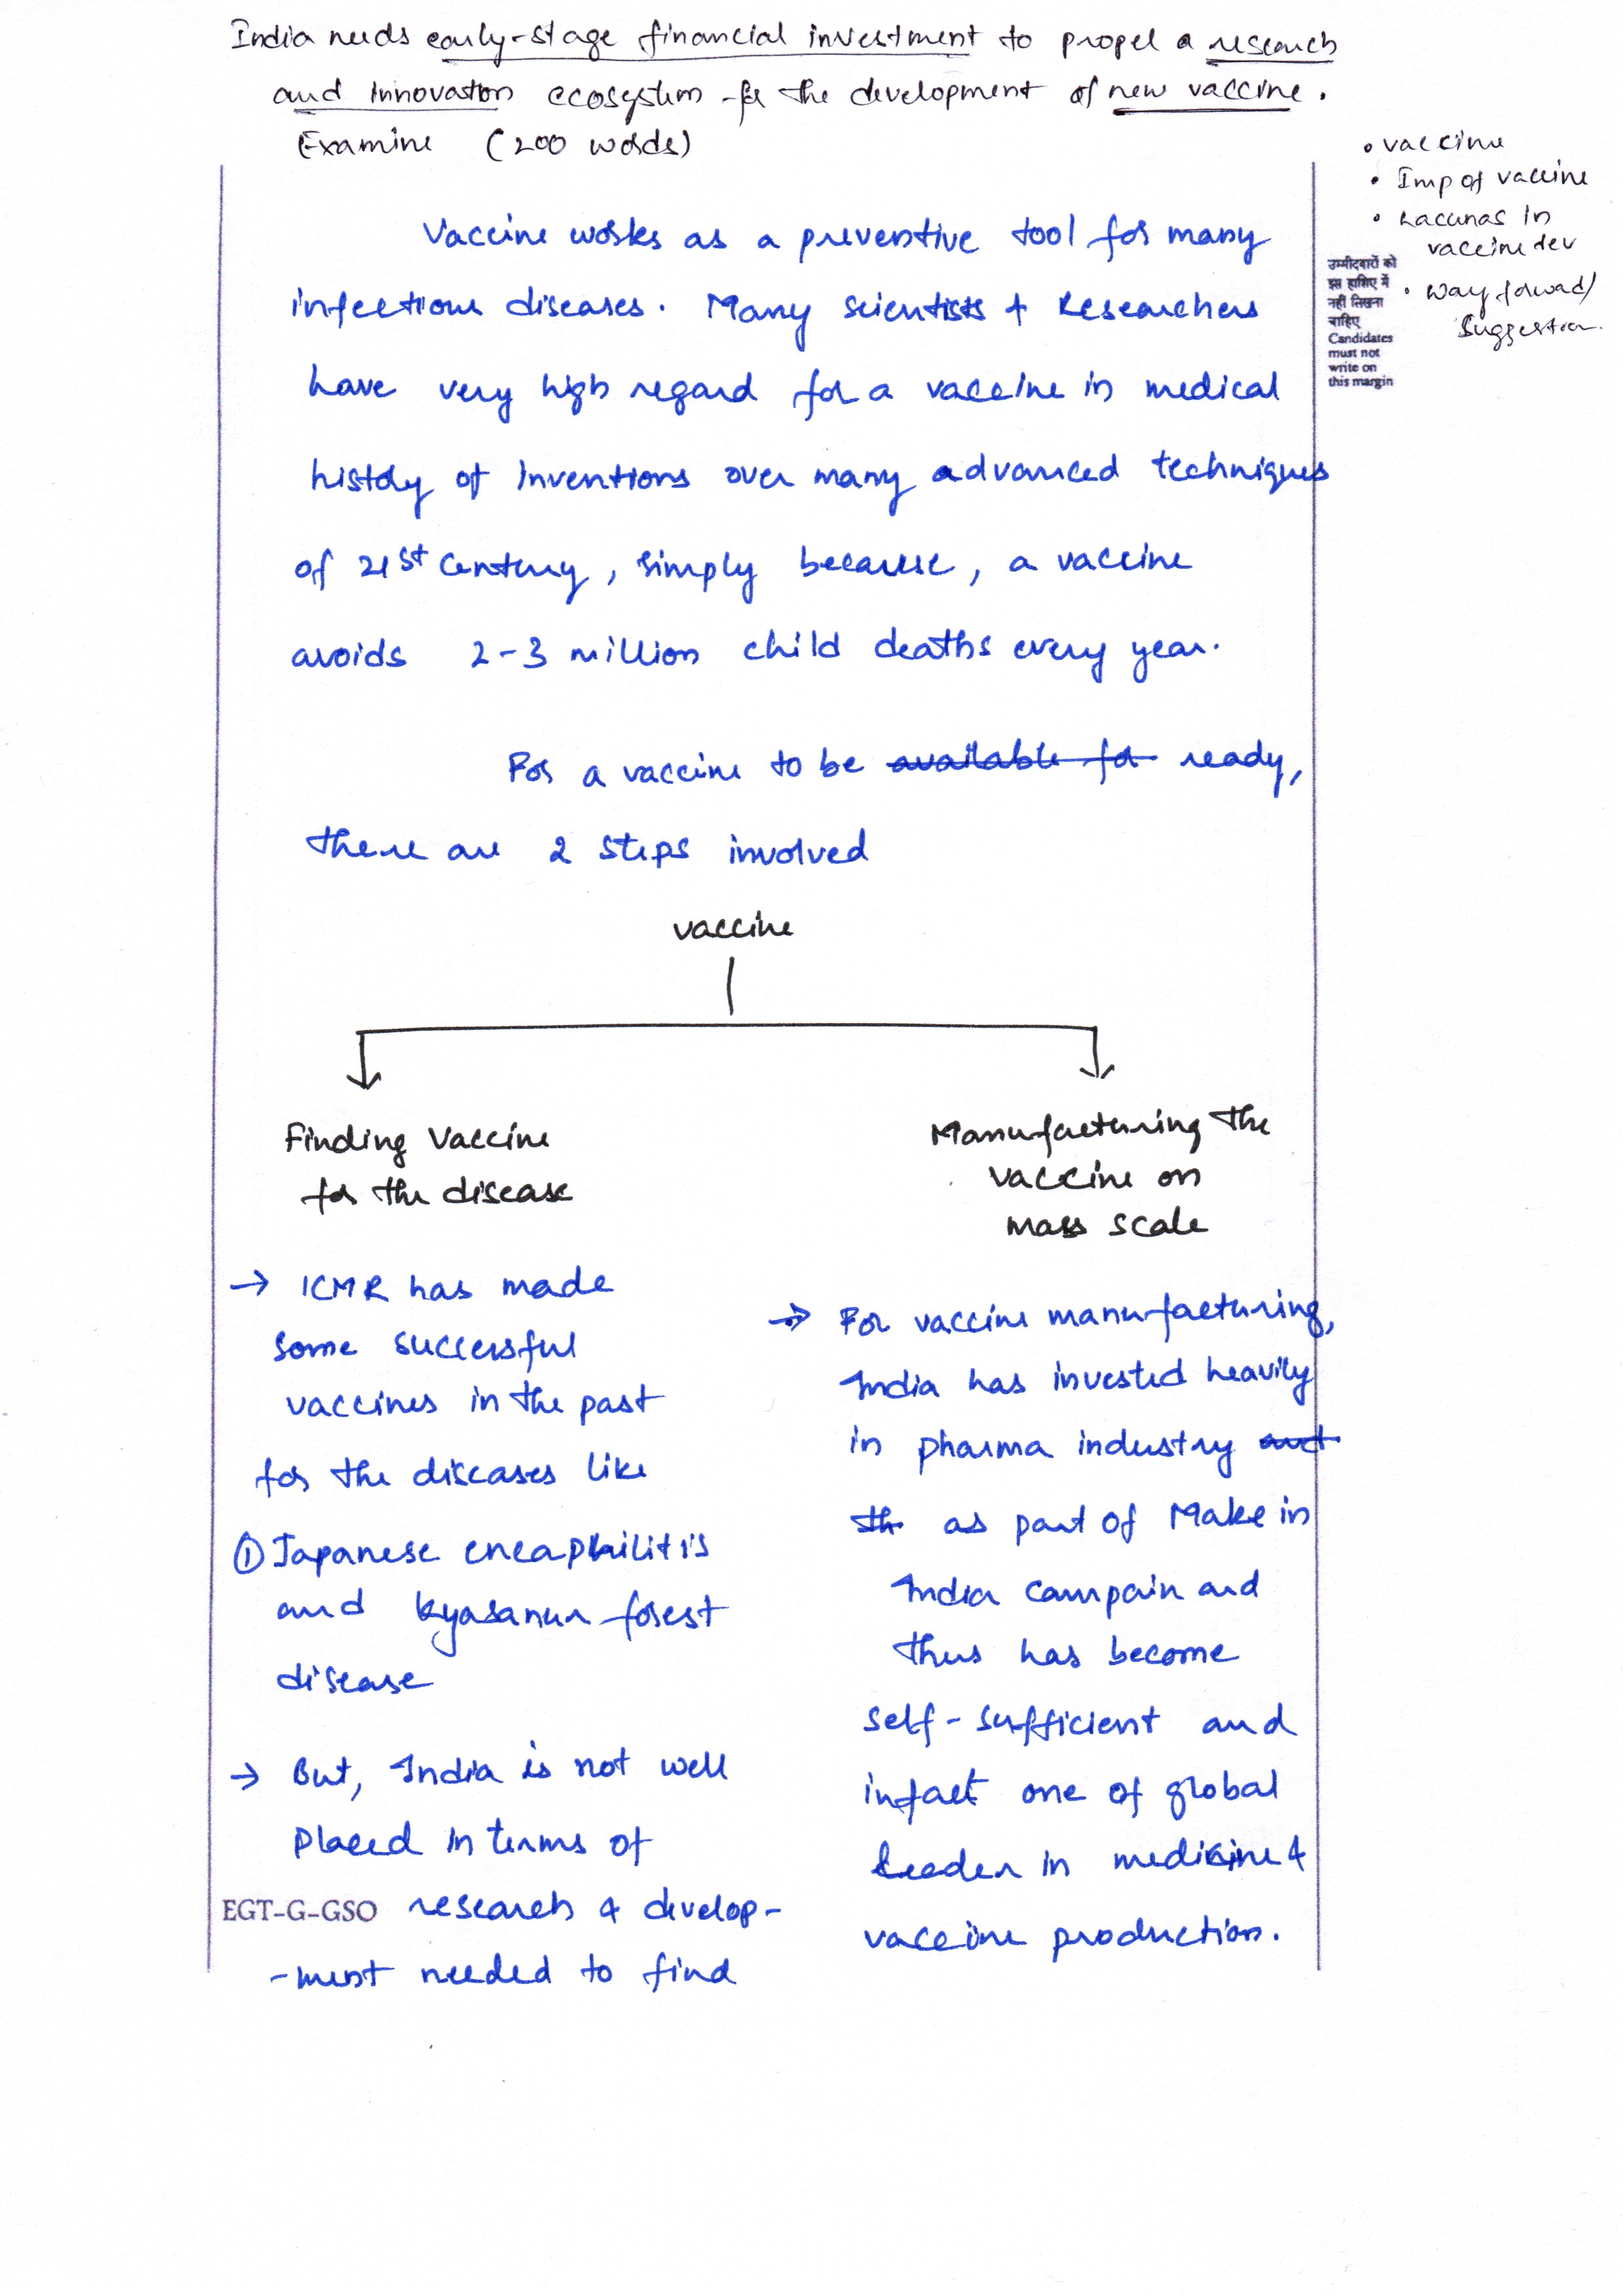 India needs early-stage financial investment to propel a research
and innovation ecosystem for the development of new vaccine.
Examine (200 words)
• vaccine
• Imp of vaccine
• Lacunas in
vaccine dev
• way forward/
suggestion.
उम्मीदवारों को
इस हाशिए में
नहीं लिखना
चाहिए
Candidates
must not
write on
this margin
Vaccine works as a preventive tool for many
infectious diseases. Many scientists & Researchers
have very high regard for a vaccine in medical
history of Inventions over many advanced techniques
of 21st Century, simply because, a vaccine
avoids 2-3 million child deaths every year.
For a vaccine to be available for ready,
there are 2 steps involved
vaccine
Finding Vaccine
for the disease
→ ICMR has made
some successful
vaccines in the past
for the diseases like
① Japanese encaphilitis
and kyasanur forest
disease
→ But, India is not well
placed in terms of
research & develop-
-ment needed to find
Manufacturing the
vaccine on
mass scale
→ For vaccine manufacturing,
India has invested heavily
in pharma industry and
th as part of Make in
India campain and
thus has become
self-sufficient and
infact one of global
leader in medicine &
vaccine production.
EGT-G-GSO